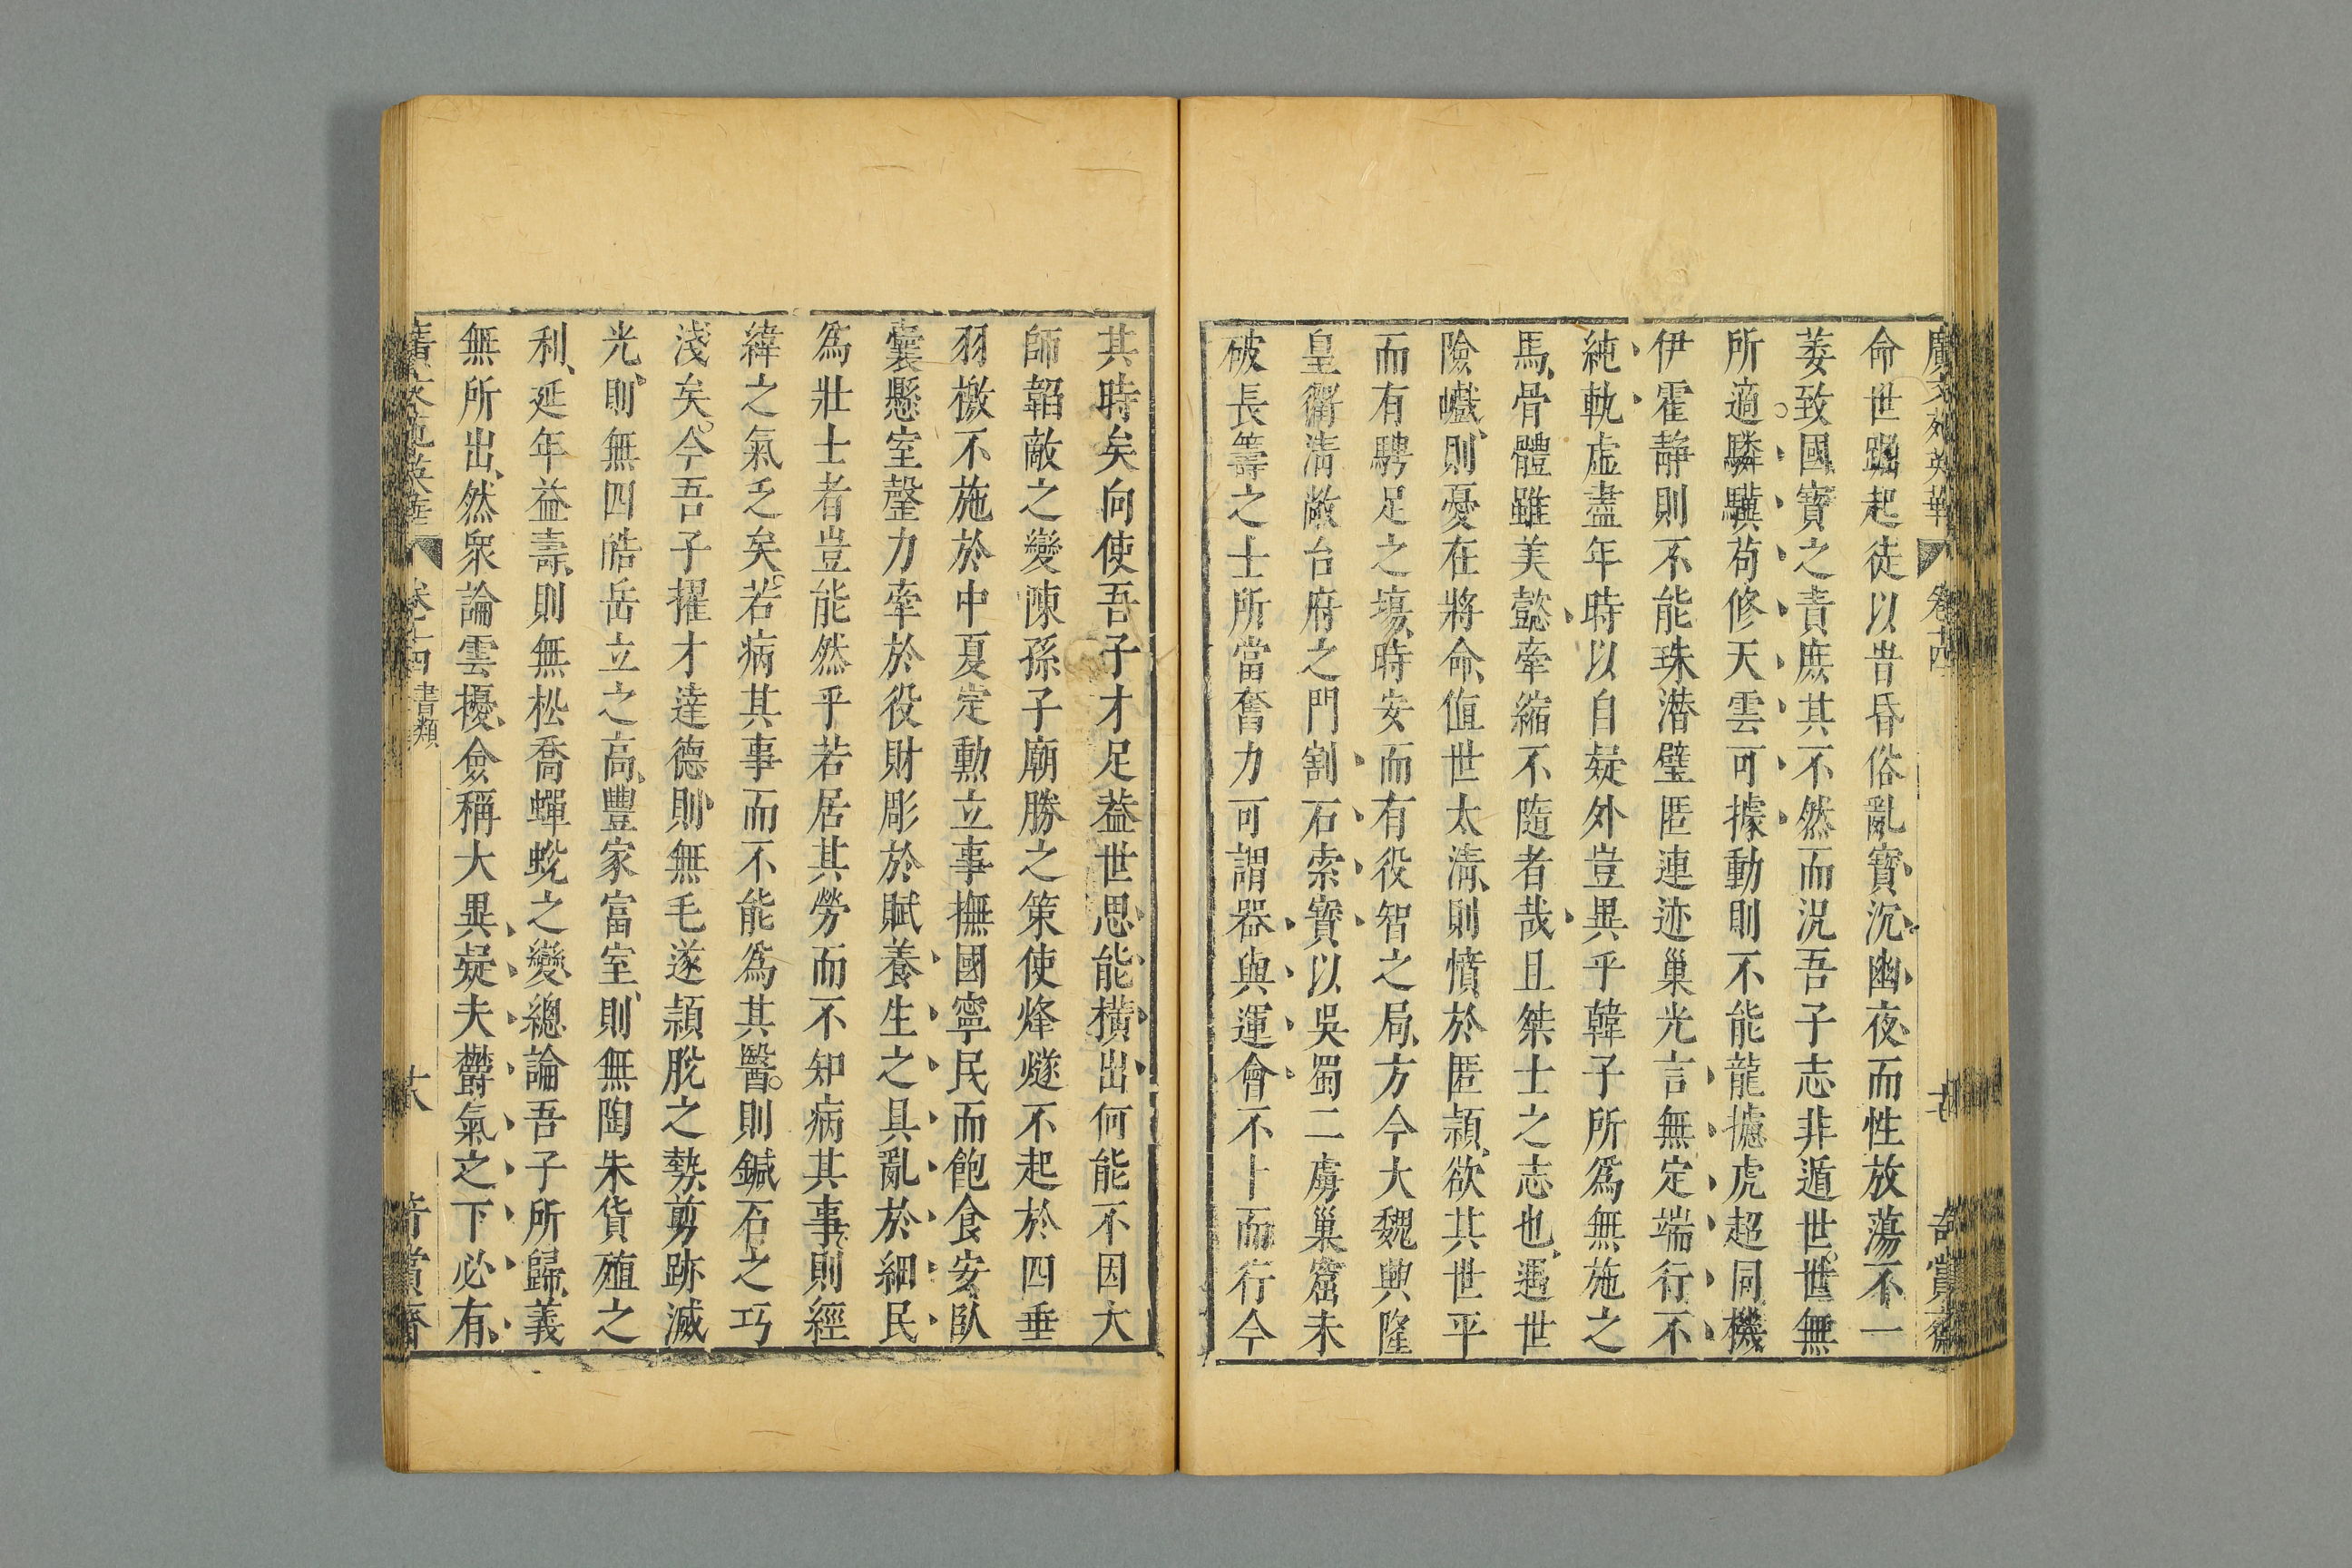 廣文苑英華 卷十四 奇賞齋
命世躍起徒以昔昏俗亂寶沉幽夜而性放蕩不一
萎致國寶之責庶其不然而況吾子志非遁世世無
所適驎驥苟修天雲可據動則不能龍攄虎超同機
伊霍靜則不能珠潜璧匿連迹巢光言無定端行不
純軌虛盡年時以自疑外豈異乎韓子所為無施之
馬骨體雖美懿牽縮不隨者哉且桀士之志也遇世
險巇則憂在將命值世太清則憤於匿頴欲其世平
而有騁足之塲時安而有役智之局方今大魏興隆
皇衢清敞台府之門割石索寶以吳蜀二虜巢窟未
破長籌之士所當奮力可謂器與運會不卜而行今
其時矣向使吾子才足葢世思能橫出何能不因大
師韜敵之變陳孫子廟勝之策使烽燧不起於四垂
羽檄不施於中夏定勳立事撫國寧民而飽食安臥
囊懸室罄力牽於役財彫於賦養生之具亂於細民
為壯士者豈能然乎若居其勞而不知病其事則經
緯之氣乏矣若病其事而不能為其醫則鍼石之巧
淺矣今吾子擢才達德則無毛遂頴脫之勢剪跡滅
光則無四皓岳立之高豐家富室則無陶朱貨殖之
利延年益壽則無松喬蟬蛻之變總論吾子所歸義
無所出然衆論雲擾僉稱大異疑夫欝氣之下必有
廣文苑英華 卷十四 書類 奇賞齋